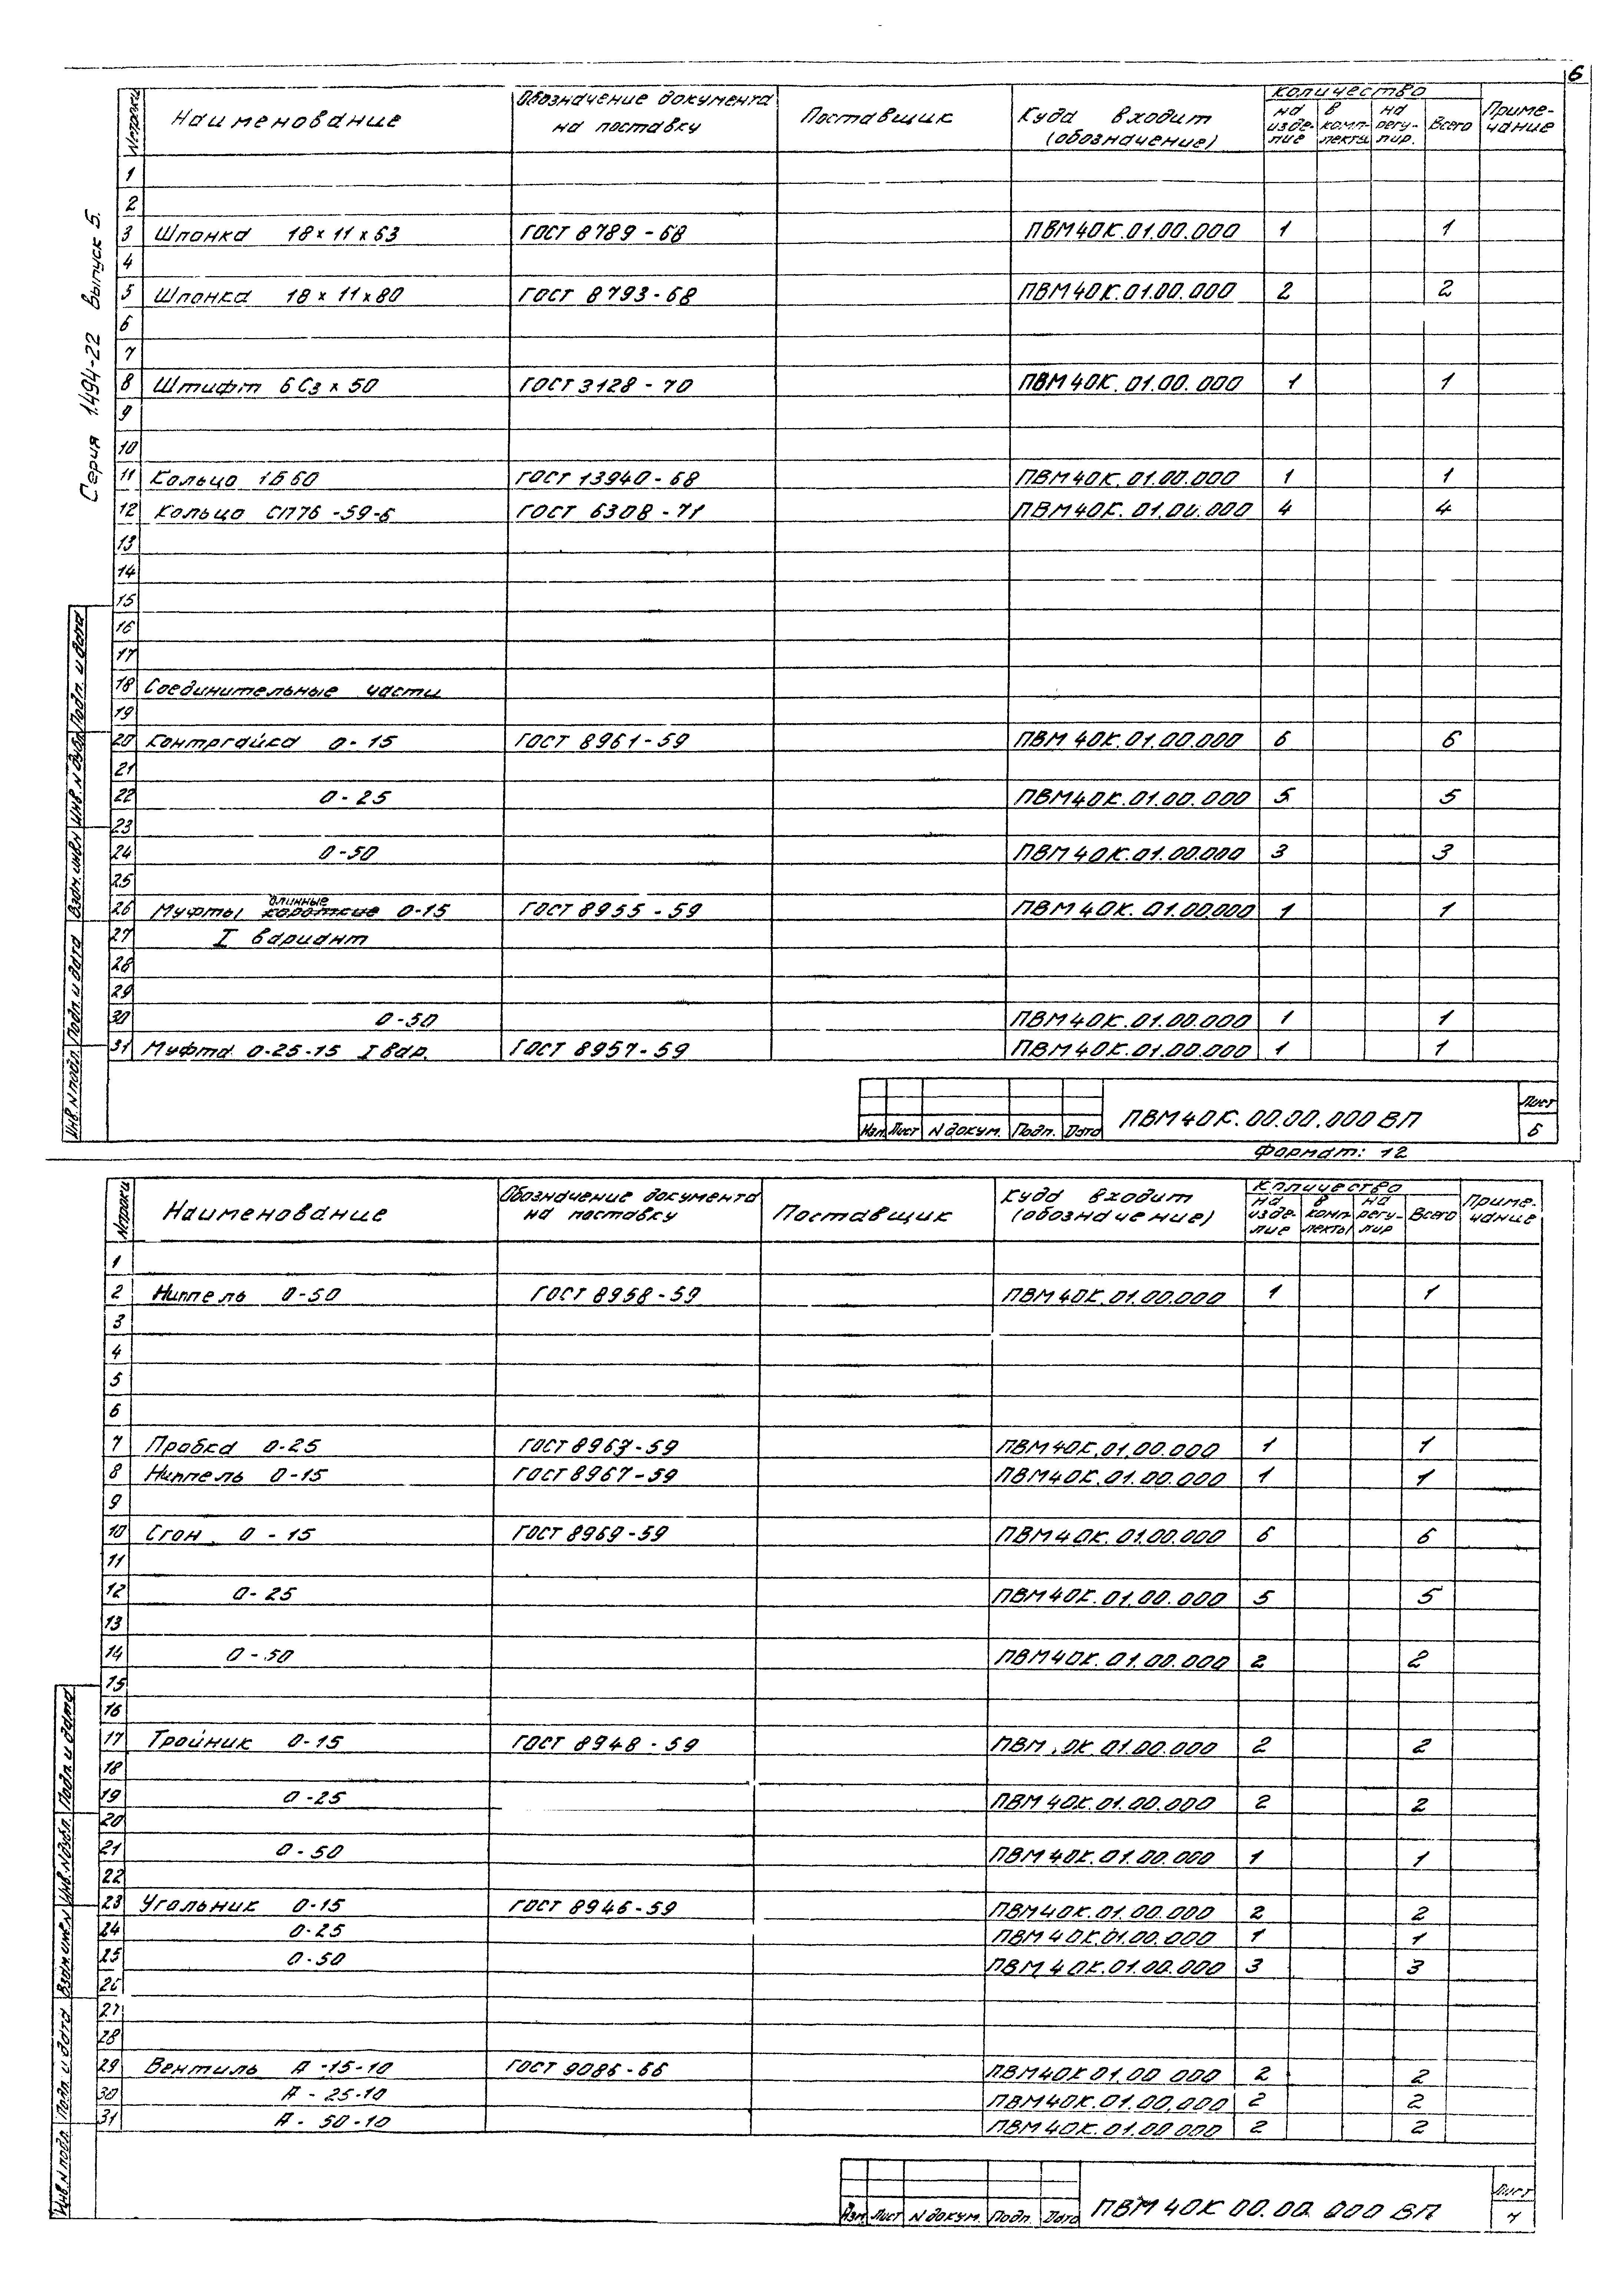 6
Серия 1.494-22 Выпуск 5.
№ строки Наименование Обозначение документа на поставку Поставщик Куда входит (обозначение) Количество на изделие в комплекты на регулир. Всего Примечание
1
2
3 Шпонка 18×11×63 ГОСТ 8789-68 ПВМ40К.01.00.000 1 1
4
5 Шпонка 18×11×80 ГОСТ 8793-68 ПВМ40К.01.00.000 2 2
6
7
8 Штифт 6С3×50 ГОСТ 3128-70 ПВМ40К.01.00.000 1 1
9
10
11 Кольцо 1Б60 ГОСТ 13940-68 ПВМ40К.01.00.000 1 1
12 Кольцо СП76-59-6 ГОСТ 6308-71 ПВМ40К.01.00.000 4 4
13
14
15
16
17
18 Соединительные части
19
20 Контргайка О-15 ГОСТ 8961-59 ПВМ40К.01.00.000 6 6
21
22 О-25 ПВМ40К.01.00.000 5 5
23
24 О-50 ПВМ40К.01.00.000 3 3
25
26 Муфты длинные короткие О-15 ГОСТ 8955-59 ПВМ40К.01.00.000 1 1
27 I вариант
28
29
30 О-50 ПВМ40К.01.00.000 1 1
31 Муфта О-25-15 I вар. ГОСТ 8957-59 ПВМ40К.01.00.000 1 1
Инв. N подл. Подп. и дата Взам. инв. N Инв. N дубл. Подп. и дата
Изм. Лист N докум. Подп. Дата ПВМ40К.00.00.000 ВП Лист 6
Формат: 12
N строки Наименование Обозначение документа на поставку Поставщик Куда входит (обозначение) Количество на изделие в комплекты на регулир Всего Примечание
1
2 Ниппель О-50 ГОСТ 8958-59 ПВМ40К.01.00.000 1 1
3
4
5
6
7 Пробка О-25 ГОСТ 8963-59 ПВМ40К.01.00.000 1 1
8 Ниппель О-15 ГОСТ 8967-59 ПВМ40К.01.00.000 1 1
9
10 Сгон О-15 ГОСТ 8969-59 ПВМ40К.01.00.000 6 6
11
12 О-25 ПВМ40К.01.00.000 5 5
13
14 О-50 ПВМ40К.01.00.000 2 2
15
16
17 Тройник О-15 ГОСТ 8948-59 ПВМ 0К 01.00.000 2 2
18
19 О-25 ПВМ40К.01.00.000 2 2
20
21 О-50 ПВМ40К.01.00.000 1 1
22
23 Угольник О-15 ГОСТ 8946-59 ПВМ40К.01.00.000 2 2
24 О-25 ПВМ40К.01.00.000 1 1
25 О-50 ПВМ40К.01.00.000 3 3
26
27
28
29 Вентиль А-15-10 ГОСТ 9086-66 ПВМ40К 01.00 000 2 2
30 А-25-10 ПВМ40К.01.00.000 2 2
31 А-50-10 ПВМ40К.01.00 000 2 2
Инв. N подл. Подп. и дата Взам инв. N Инв. N дубл. Подп. и дата
Изм Лист N докум. Подп. Дата ПВМ40К 00.00.000 ВП Лист 7